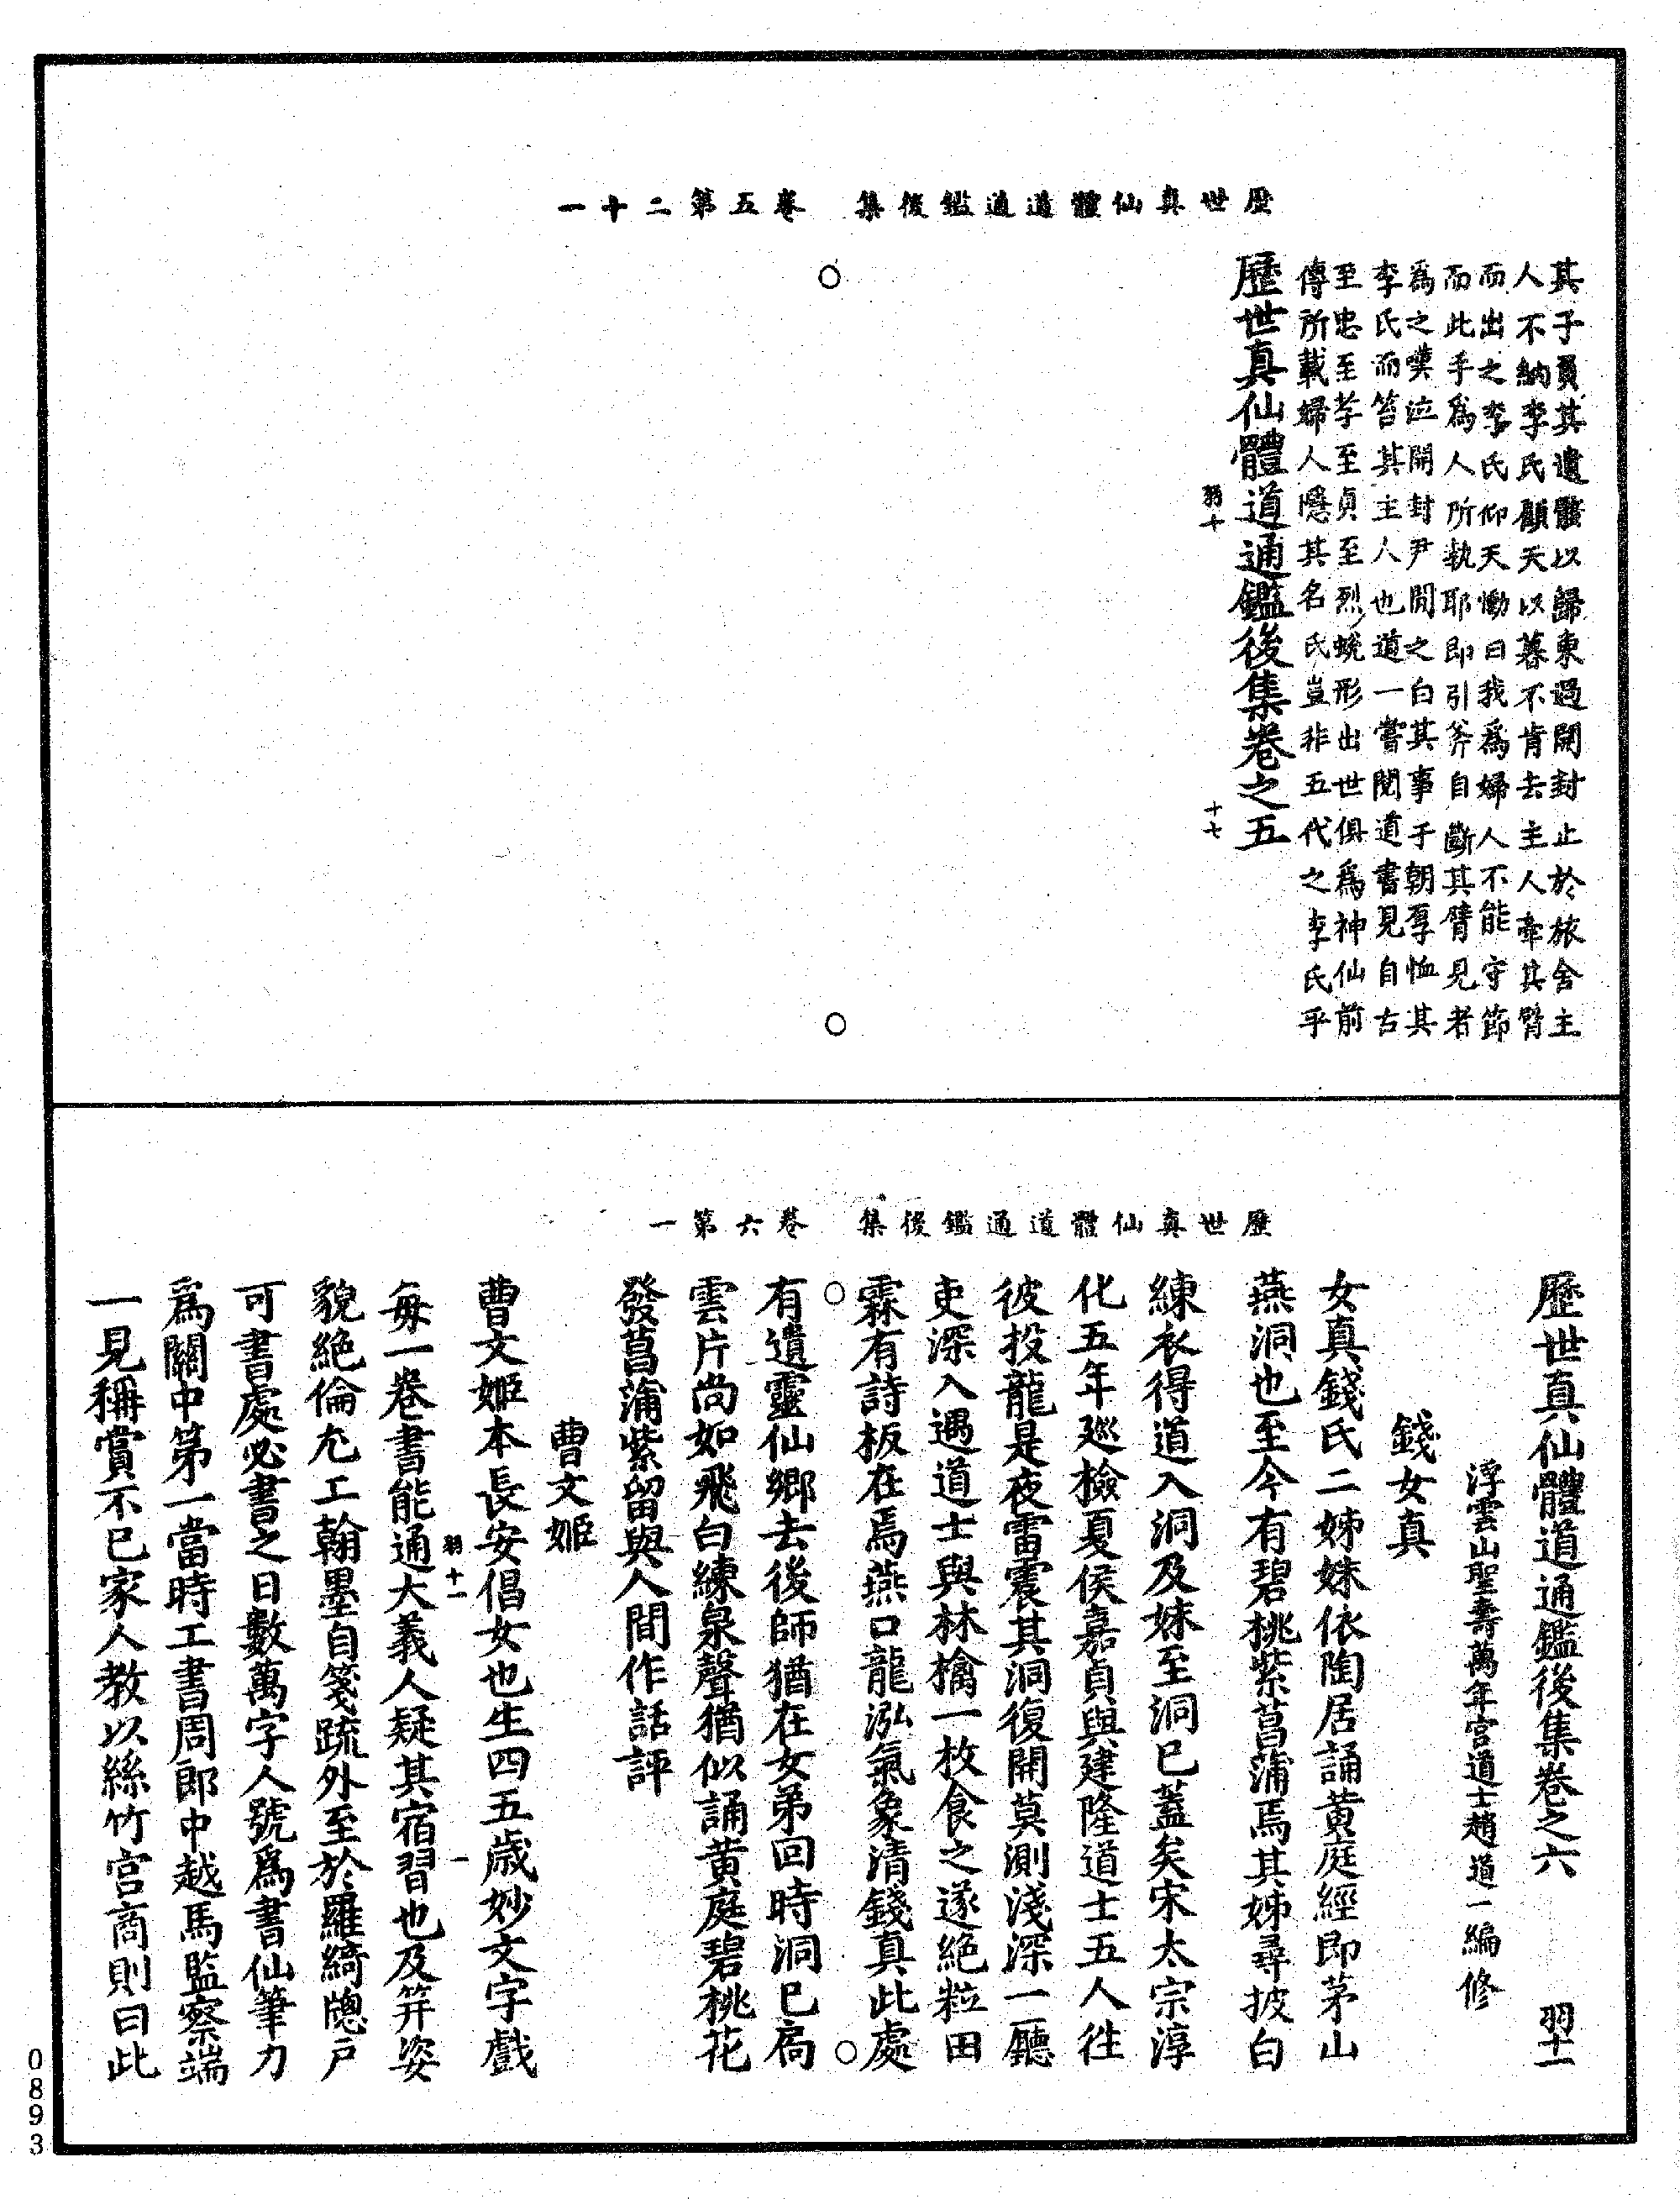 歷世真仙體道通鑑後集　卷五第二十一
其子負其遺骸以歸東過開封止於旅舍主
人不納李氏顧天以暮不肯去主人牽其臂
而出之李氏仰天慟曰我爲婦人不能守節
而此手爲人所執耶即引斧自斷其臂見者
爲之嘆泣開封尹聞之白其事于朝厚恤其
李氏而笞其主人也道一嘗閱道書見自古
至忠至孝至貞至烈蛻形出世俱爲神仙前
傳所載婦人隱其名氏豈非五代之李氏乎
歷世真仙體道通鑑後集卷之五
羽十　十七
歷世真仙體道通鑑後集　卷六第一
歷世真仙體道通鑑後集卷之六　羽十一
浮雲山聖壽萬年宮道士趙道一編修
錢女真
女真錢氏二姊妹依陶居誦黃庭經即茅山
燕洞也至今有碧桃紫菖蒲焉其姊尋披白
練衣得道入洞及妹至洞已蓋矣宋太宗淳
化五年廵檢夏侯嘉貞與建隆道士五人往
彼投龍是夜雷震其洞復開莫測淺深一廳
吏深入遇道士與林檎一枚食之遂絕粒田
霖有詩板在焉燕口龍泓氣象清錢真此處
有遺靈仙鄉去後師猶在女弟回時洞已扃
雲片尚如飛白練泉聲猶似誦黃庭碧桃花
發菖蒲紫留與人間作話評
曹文姬
曹文姬本長安倡女也生四五歲妙文字戲
每一卷書能通大義人疑其宿習也及笄姿
羽十一　一
貌絕倫尤工翰墨自箋疏外至於羅綺牕戶
可書處必書之日數萬字人號爲書仙筆力
爲關中第一當時工書周郎中越馬監察端
一見稱賞不已家人教以絲竹宮商則曰此
0893